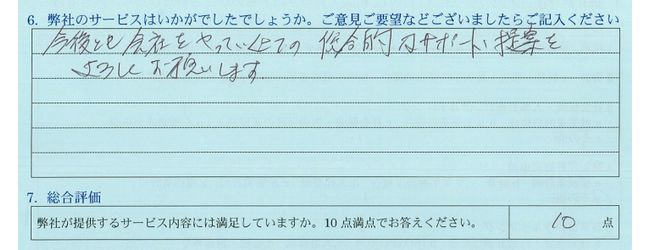 6. 弊社のサービスはいかがでしたでしょうか。ご意見ご要望などございましたらご記入ください
今後とも会社をやっていく上での 総合的なサポート、提案を
よろしくお願いします
7. 総合評価
弊社が提供するサービス内容には満足していますか。10点満点でお答えください。 10 点